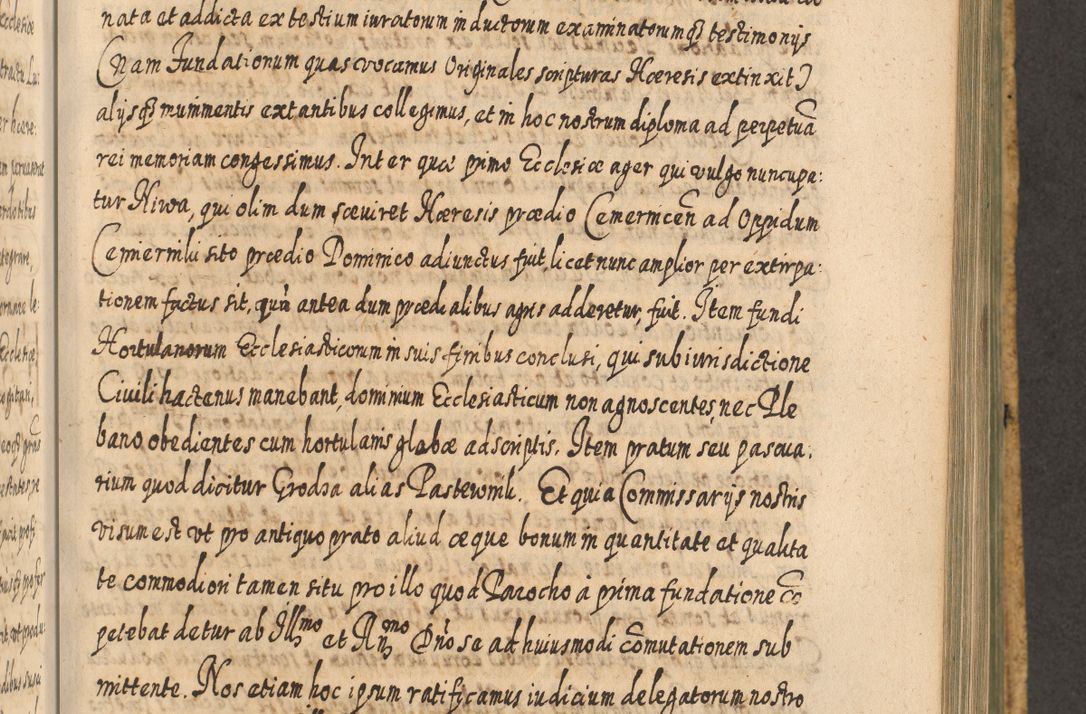 nata et addicta ex testium iuratorum inductorum examinatorumq3 testimonijs
(Nam Fundationum quas vocamus Originales scripturas Hæresis extinxit)
alijsq3 munimentis extantibus collegimus, et in hoc nostrum diploma ad perpetuā
rei memoriam congessimus. Inter quæ primo Ecclesiæ ager qui vulgo nuncupa:
tur Niwa, qui olim dum sæuiret Hæresis prædio Cemernicen̄ ad Oppidum
sito prædio Dominico adiunctus fuit, licet nunc amplior per extirpa:
tionem factus sit, quā antea dum prædialibus agris adderetur, fuit. Item fundi
Hortulanorum Ecclesiasticorum in suis finibus conclusi, qui sub iurisdictione
Ciuili hactenus manebant, dominium Ecclesiasticum non agnoscentes, nec Ple
bano obedientes cum hortulanis glabæ adscriptis. Item pratum seu pascua:
rium quod dicitur Grodza alias Pastewnik. Et quia Commissarijs nostris
visum est vt pro antiquo prato aliud æque bonum in quantitate et qualita
te commodiori tamen situ pro illo quod Parocho à prima fundatione cō
petebat detur ab Illmo et Rnmo Dn̄o se ad huiusmodi cōmutationem sub
mittente. Nos etiam hoc ipsum ratificamus iudicium delegatorum nostro